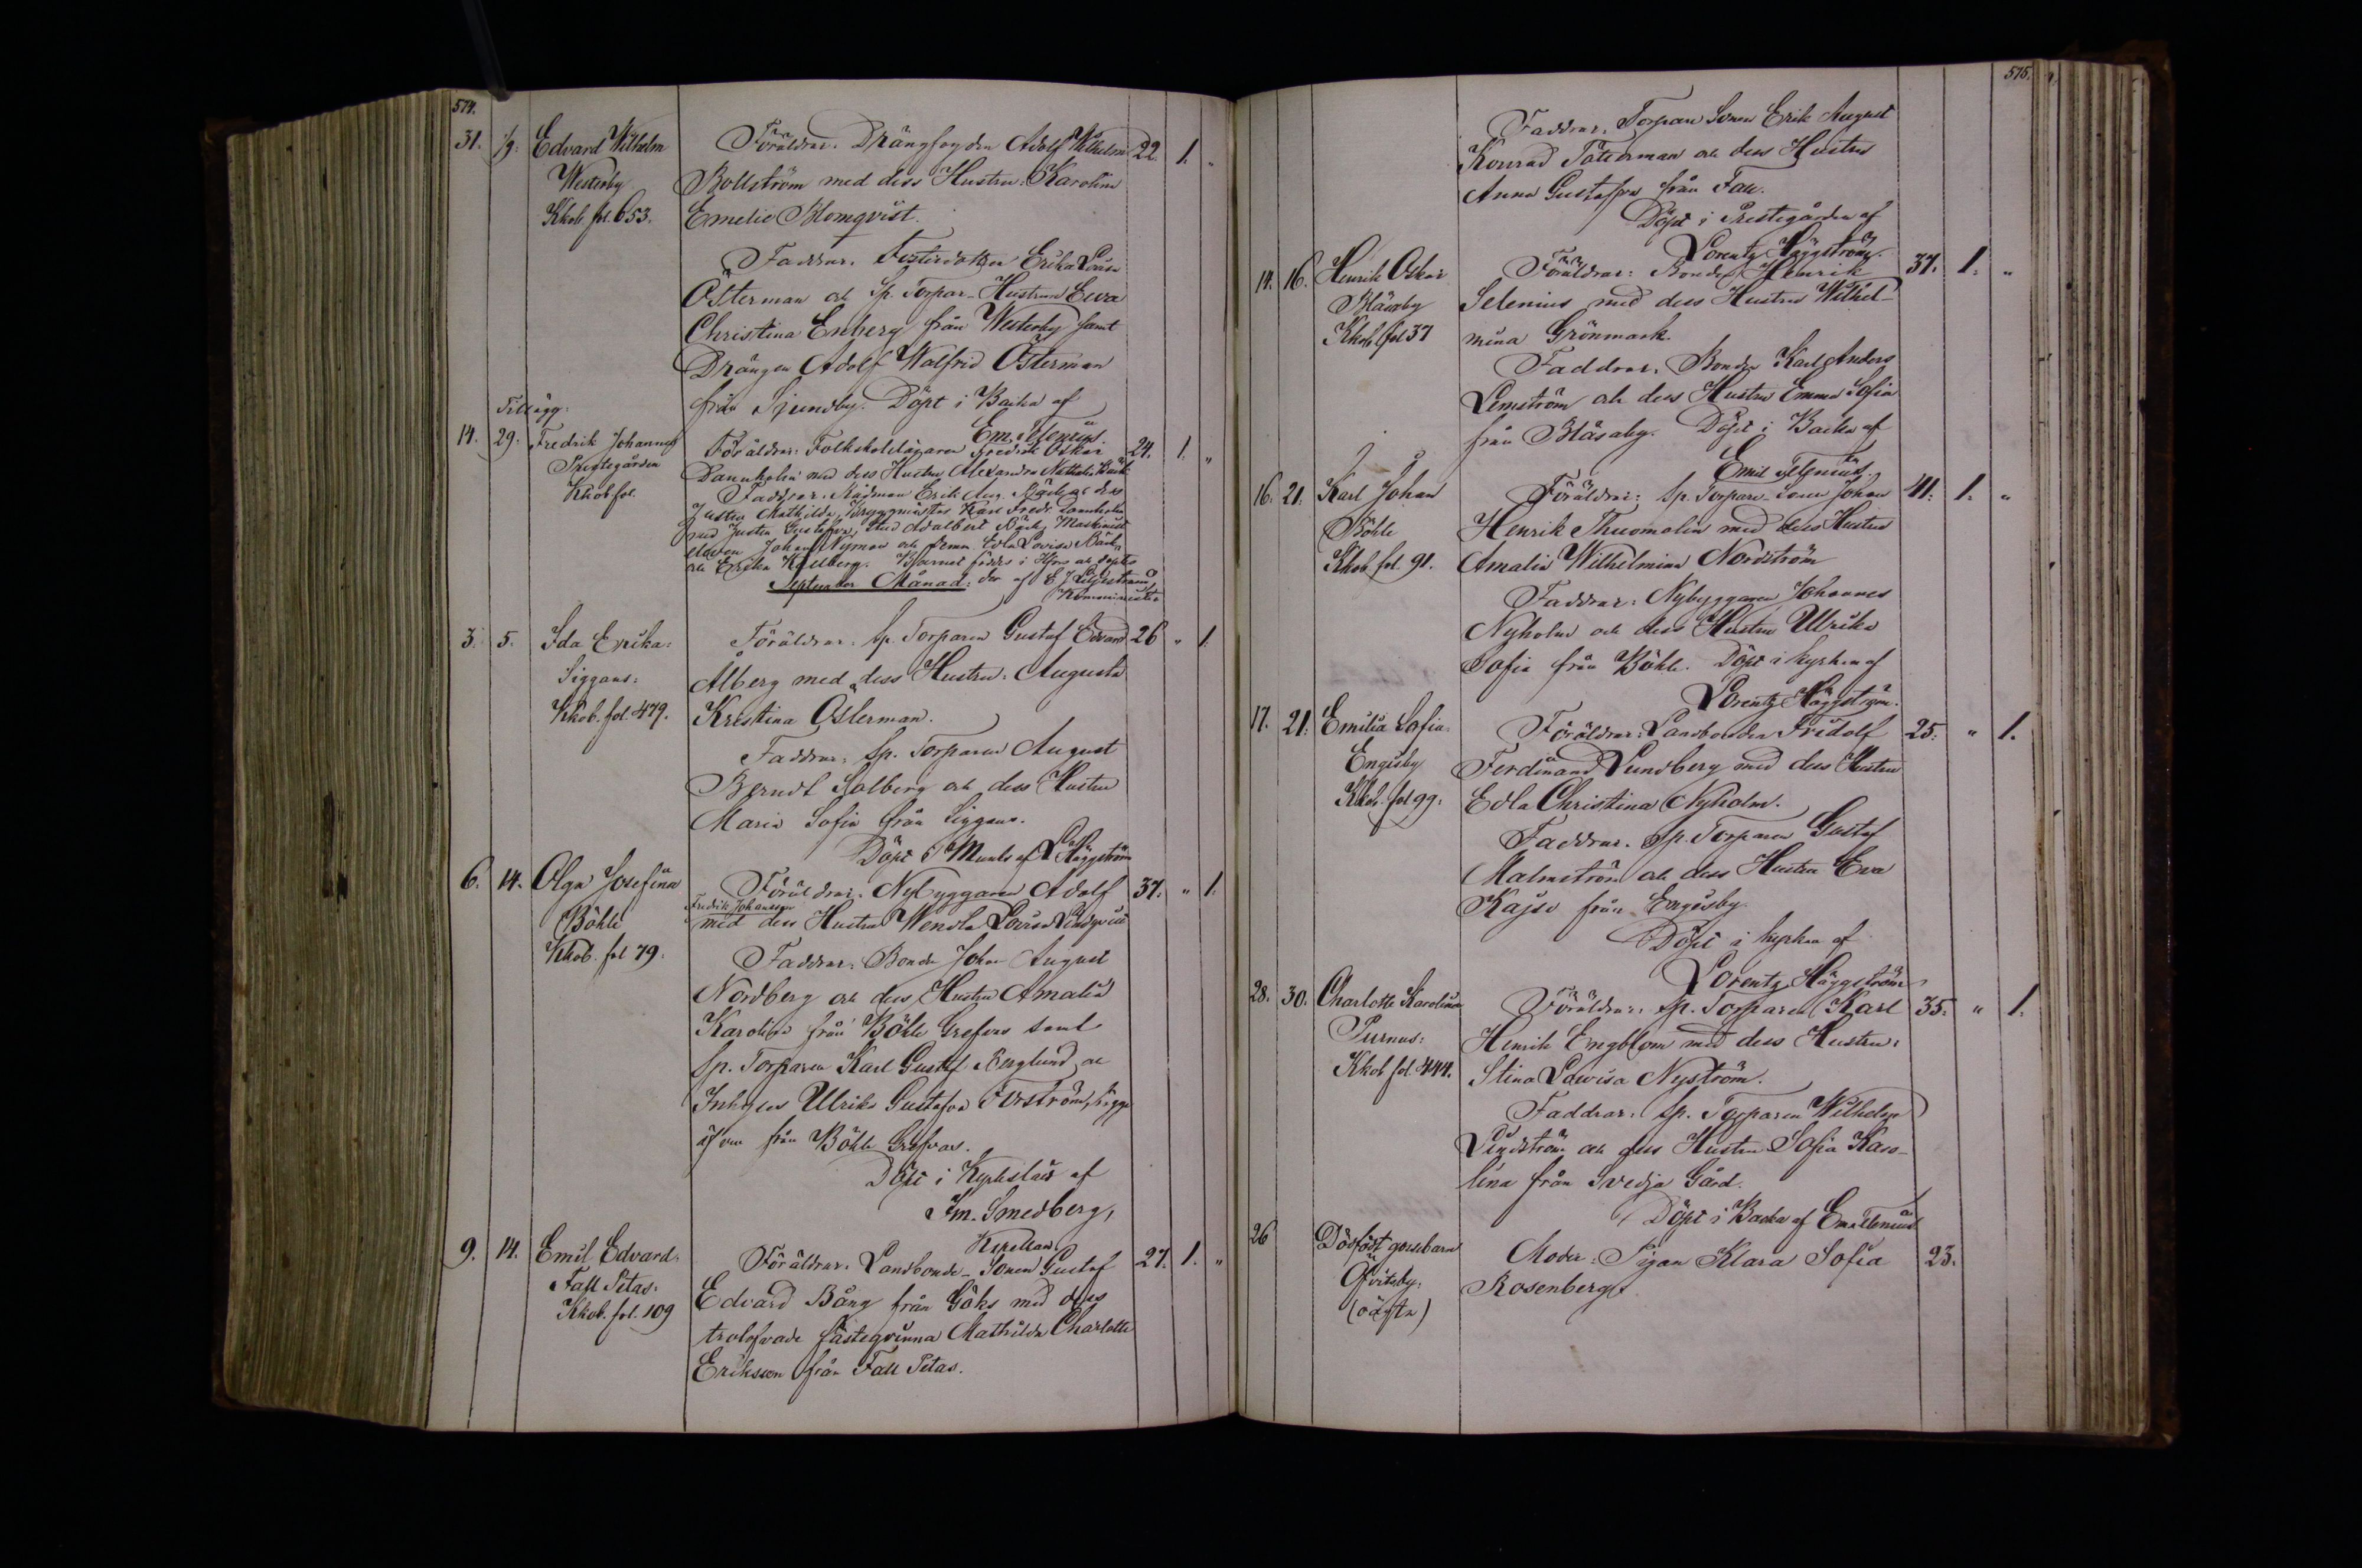 574.
31. 1/9. Edvard Wilhelm Föräldrar. Drängfogden Adolf Wilhelm 22. 1. "
Westerby Bollström med dess Hustru: Karolina
Kkob. fol. 653. Emelie Blomqvist.
Faddrar. Erika Lovisa
Österman och Sp. Torpar-Hustrun Ewa
Christina Enberg från Westerby samt
Drängen Adolf Walfrid Österman
från Sjundby. Döpt i Backa af
Em. Telenius.
Tillägg:
14. 29. Fredrik Johannes Föräldrar: Fredrik Oskar 24. 1. "
Prestegården Dannholm med dess Hustru Alexandra Nathalia Bäck
Kkob fol. Faddrar. Rådman Erik Aug. Bäck och dess
Hustru Mathilda, Karl Fredr. Dannholm
med Hustru Gustafva, Stud Adalbert Bäck, Maskinist
eleven Johan Nyman och Demn. Edla Lovisa Bäck
och Erika Kullberg. Barnet föddes i Hfors och döptes
September Månad: der af E J
Komminister
3. 5. Ida Erika: Föräldrar. Sp. Torparen Gustaf Edvard 26 " 1.
Siggans: Ålberg med dess Hustru: Augusta
Kkob. fol. 479. Kristina Österman.
Faddrar: Sp. Torparen August
Berndt Salberg och dess Hustru
Maria Sofia från Siggans.
Döpt i Munks af L Häggström
6. 14. Olga Josefina Föräldrar. Nybyggaren Adolf 37. " 1.
Fredrik Johansson
Böhle med dess Hustru Wendla Lovisa Lindqvist
Kkob. fol 79. Faddrar: Bonden Johan August
Nordberg och dess Hustru Amalia
Karolina från Böhle Grefvas samt
Sp. Torparen Karl Gustaf Berglund och
Inhyses Ulrika Gustafva
från Böhle Grefvas.
Döpt i Kyrkslätt af
Im. Smedberg,
Kapellan.
9. 14. Emil Edvard. Föräldrar. Landbonde-Sonen Gustaf 27. 1. "
Fall Pitas: Edvard Bång från Göks med dess
Kkob. fol. 109 trolofvade fästeqvinna Mathilda Charlotta
Eriksson från Fall Pitas.
575.
Faddrar. Torpare Sonen Erik August
Konrad Täterman och dess Hustru
Anna Gustafva från Fall.
Döpt i Prestegården af
Lorentz Häggström.
14. 16. Henrik Oskar Föräldrar: Bonden Henrik 37. 1. "
Blåsaby Selenius med dess Hustru Wilhel-
Kkob fol 37 mina Grönmark.
Faddrar. Bonden Karl Anders
Lemström och dess Hustru Emma Sofia
från Blåsaby. Döpt i Backa af
Emil Telenius.
16. 21. Karl Johan Föräldrar: Sp. Torpare Sonen Johan 41. 1. "
Böhle Henrik Thuomolin med dess Hustru
Kkob. fol. 91. Amalia Wilhelmina Nordström
Faddrar: Nybyggaren Johannes
Nyholm och dess Hustru Ulrika
Sofia från Böhle. Döpt i kyrkan af
Lorentz Häggström.
17. 21. Emilia Sofia. Föräldrar: Landbonden Fridolf 25. " 1.
Engisby Ferdinand Lundberg med dess Hustru
Kkob. fol 99. Edla Christina Nyholm.
Faddrar. Sp. Torparen Gustaf
Malmström och dess Hustru Eva
Kajsa från Engisby.
Döpt i kyrkan af
Lorentz Häggström
28. 30. Charlotta Karolina Föräldrar. Sp. Torparen Karl 35. " 1.
Purnus: Henrik Engblom med dess Hustru:
Kkob fol. 444. Stina Lovisa Nyström.
Faddrar: Sp. Torparen Wilhelm
Lindström och dess Hustru Sofia Karo-
lina från Svedja Gård.
Döpt i Backa af Em. Telenius
26 Dödfödt gossebarn Moder: Pigan Klara Sofia 23.
Öfvitsby. Rosenberg.
(oägta)